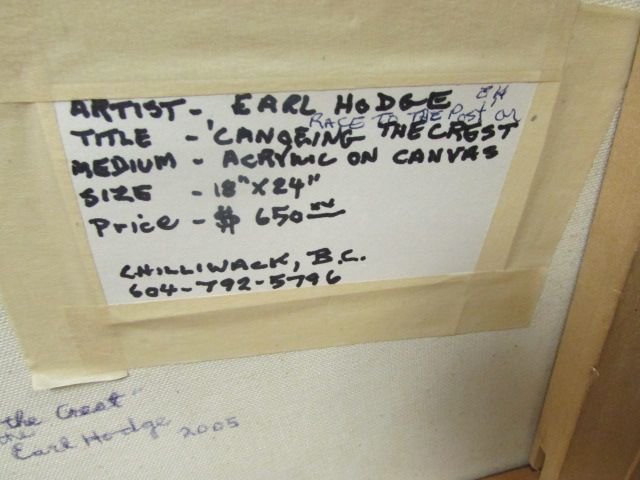 ARTIST - EARL HODGE EH
RACE TO THE POST or
TITLE - 'CANOEING THE CREST
MEDIUM - ACRYLIC ON CANVAS
SIZE - 18" X 24"
Price - $ 650
CHILLIWACK, B.C.
604-792-5796
the Crest"
the
Earl Hodge 2005